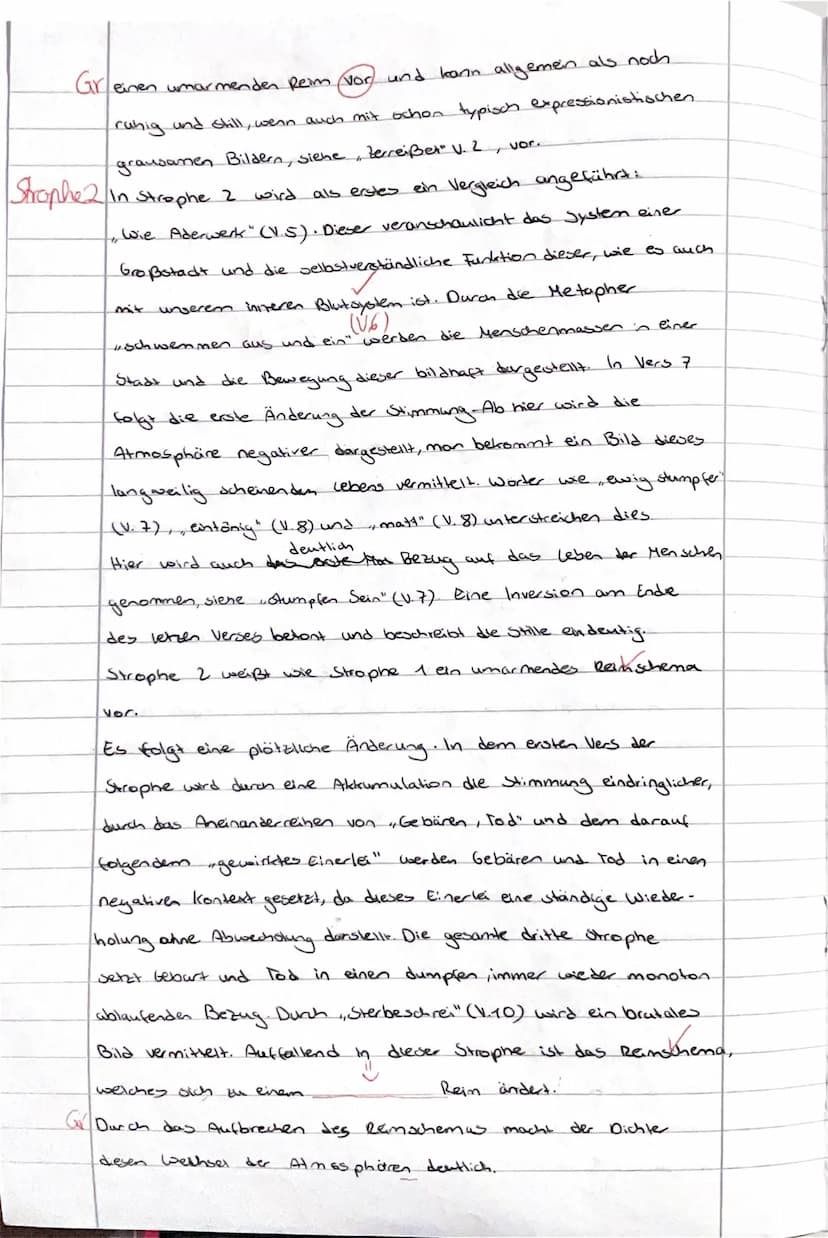 Gr einen umarmenden Reim vor und kann allgemein als noch
ruhig und still, wenn auch mit schon typisch expressionistischen
grausamen Bildern, siehe „zerreißet" V. 2, vor.
Strophe 2 In Strophe 2 wird als erstes ein Vergleich angeführt:
„Wie Aderwerk" (V.5). Dieser veranschaulicht das System einer
Großstadt und die selbstverständliche Funktion dieser, wie es auch
mit unserem inneren Blutsystem ist. Durch die Metapher
(V6)
„schwemmen aus und ein" werden die Menschenmassen in einer
Stadt und die Bewegung dieser bildhaft dargestellt. In Vers 7
folgt die erste Änderung der Stimmung. Ab hier wird die
Atmosphäre negativer dargestellt, man bekommt ein Bild dieses
langweilig scheinenden Lebens vermittelt. Wörter wie „ewig stumpfer"
(V. 7), „eintönig" (V. 8) und „matt" (V. 8) unterstreichen dies.
deutlich
Hier wird auch das erste Bezug auf das Leben der Menschen
genommen, siehe „stumpfen Sein" (V.7). Eine Inversion am Ende
des letzen Verses betont und beschreibt die Stille eindeutig.
Strophe 2 weißt wie Strophe 1 ein umarmendes Reimschema
vor.
Es folgt eine plötzliche Änderung. In dem ersten Vers der
Strophe wird durch eine Akkumulation die Stimmung eindringlicher,
durch das Aneinanderreihen von „Gebären, Tod" und dem darauf
folgendem „gewirktes Einerlei" werden Gebären und Tod in einen
negativen Kontext gesetzt, da dieses Einerlei eine ständige Wieder-
holung ohne Abwechslung darstellt. Die gesamte dritte Strophe
setzt Geburt und Tod in einen dumpfen, immer wieder monoton
ablaufenden Bezug. Durch „Sterbeschrei" (V.10) wird ein brutales
Bild vermittelt. Auffallend in dieser Strophe ist das Reimschema,
welches sich zu einem Reim ändert.
Gr Durch das Aufbrechen des Reimschemas macht der Dichter
diesen Wechsel der Atmosphären deutlich.